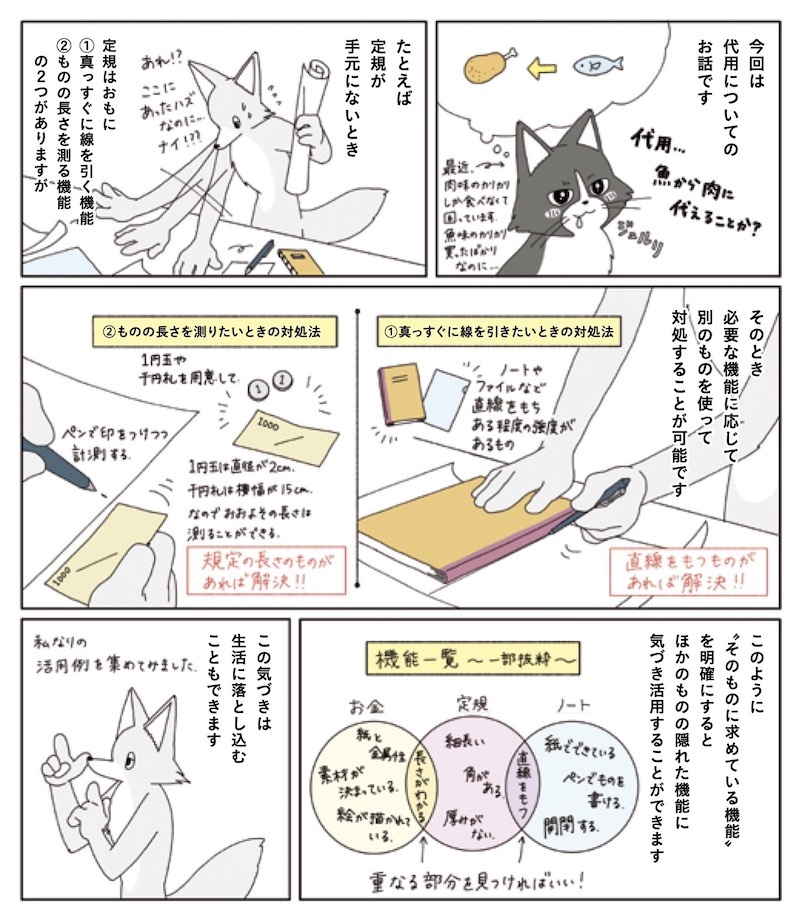 今回は
代用についての
お話です
代用…
魚から肉に
代えることか?
ジュルリ
最近、
肉味のカリカリ
しか食べなくて
困っています.
魚味のカリカリ
買ったばかり
なのに…
たとえば
定規が
手元にないとき
あれ!?
ここに
あったハズ
なのに…
ナイ!??
定規はおもに
①真っすぐに線を引く機能
②ものの長さを測る機能
の2つがありますが
そのとき
必要な機能に応じて
別のものを使って
対処することが可能です
①真っすぐに線を引きたいときの対処法
ノートや
ファイルなど
直線をもち
ある程度の強度が
あるもの
直線をもつものが
あれば解決!!
②ものの長さを測りたいときの対処法
1円玉や
千円札を用意して.
1
1
1000
1円玉は直径が2cm.
千円札は横幅が15cm.
なのでおおよその長さは
測ることができる.
ペンで印をつけつつ
計測する.
1000
規定の長さのものが
あれば解決!!
このように
〝そのものに求めている機能〟
を明確にすると
ほかのものの隠れた機能に
気づき活用することができます
機能一覧 ～一部抜粋～
お金
定規
ノート
紙と
金属性
素材が
決まっている.
絵が描かれて
いる.
長さがわかる
細長い
角が
ある
厚みが
ない.
直線をもつ
紙でできている
ペンでものを
書ける.
開閉する.
重なる部分を見つければいい!
この気づきは
生活に落とし込む
こともできます
私なりの
活用例を集めてみました.